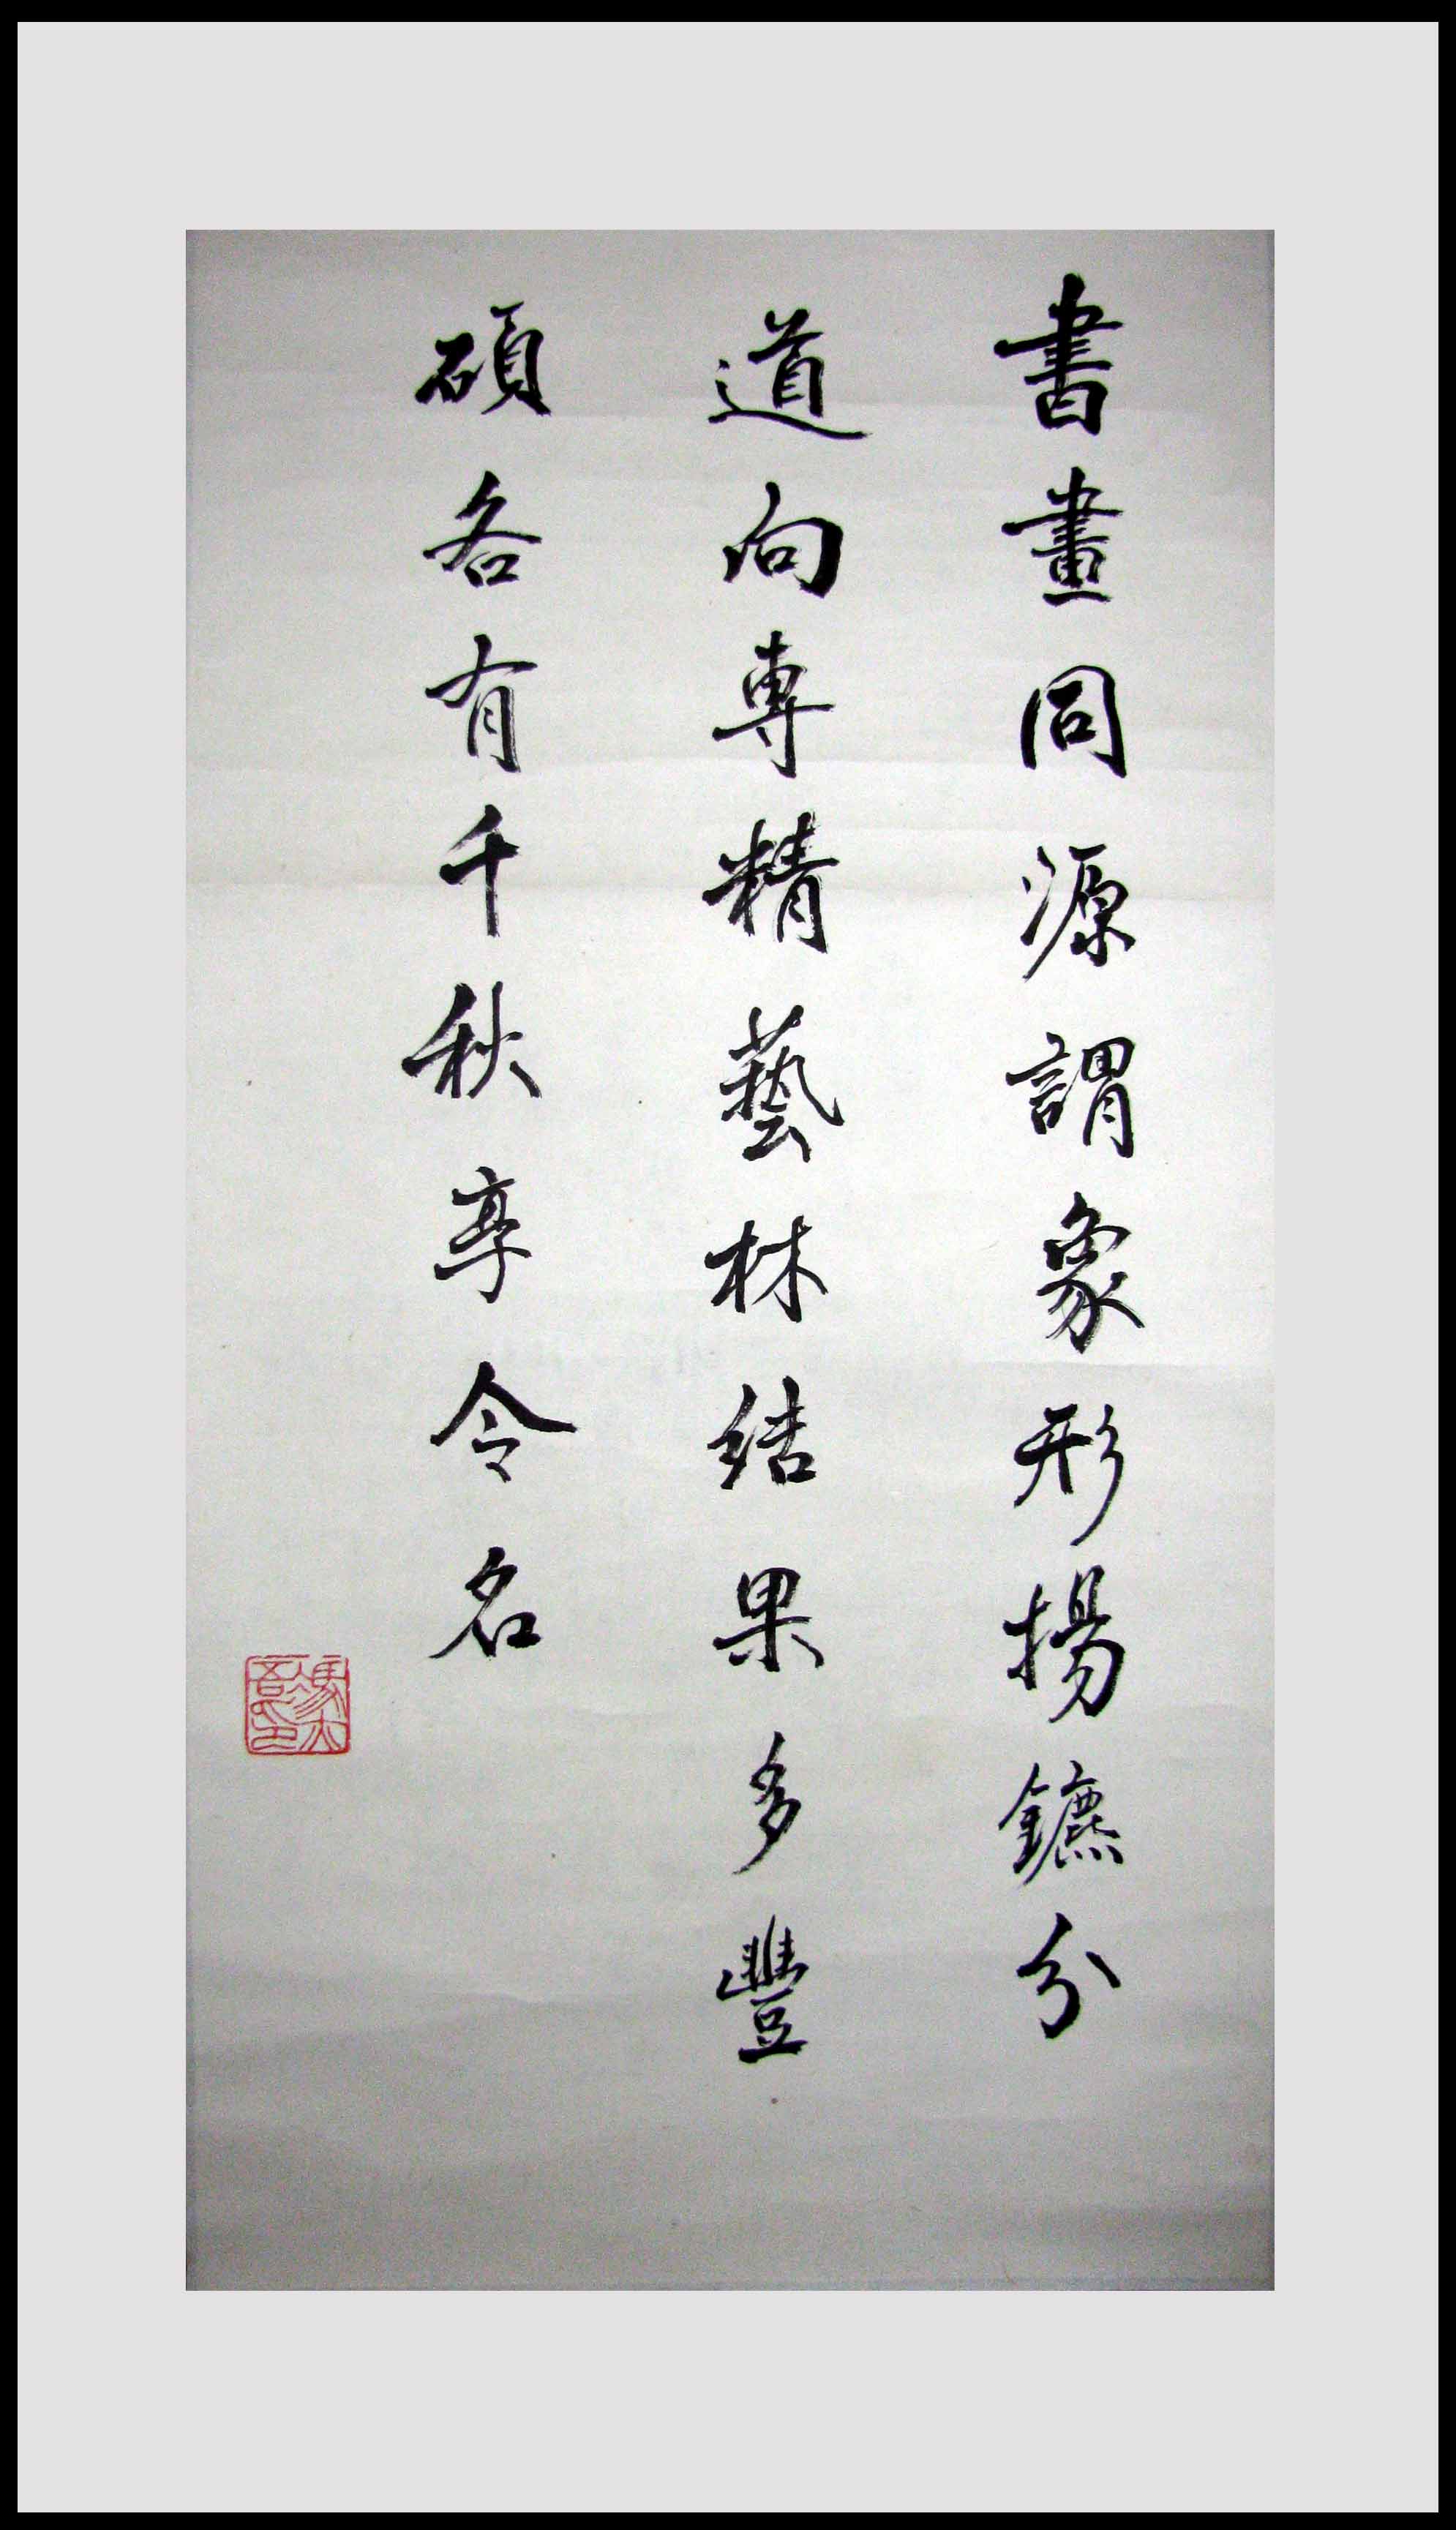 書畫同源謂象形揚鑣分
道向專精藝林結果多豐
碩各有千秋享令名